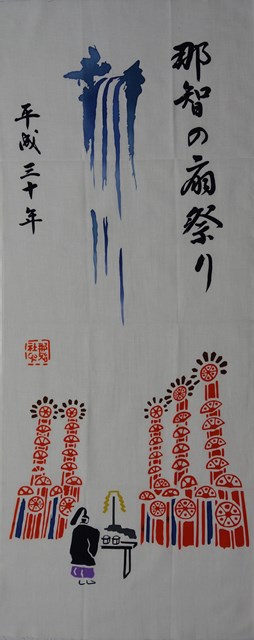 那智の扇祭り
平成三十年